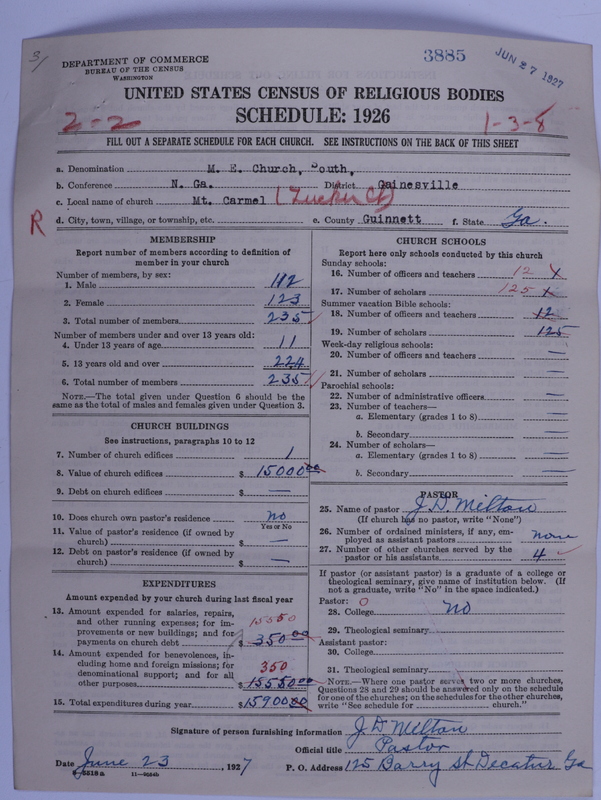 3/
DEPARTMENT OF COMMERCE
BUREAU OF THE CENSUS
WASHINGTON
3885
JUN 27 1927
UNITED STATES CENSUS OF RELIGIOUS BODIES
SCHEDULE: 1926
2-2
1-3-8
FILL OUT A SEPARATE SCHEDULE FOR EACH CHURCH. SEE INSTRUCTIONS ON THE BACK OF THIS SHEET
a. Denomination M. E. Church, South,
b. Conference N. Ga. District Gainesville
c. Local name of church Mt. Carmel (Tucker Ct)
R
d. City, town, village, or township, etc. e. County Guinnett f. State Ga.
MEMBERSHIP
Report number of members according to definition of member in your church
Number of members, by sex:
1. Male 112
2. Female 123
3. Total number of members 235
Number of members under and over 13 years old:
4. Under 13 years of age 11
5. 13 years old and over 224
6. Total number of members 235
NOTE.—The total given under Question 6 should be the
same as the total of males and females given under Question 3.
CHURCH BUILDINGS
See instructions, paragraphs 10 to 12
7. Number of church edifices 1
8. Value of church edifices $ 15000 00
9. Debt on church edifices $ —
10. Does church own pastor's residence no
Yes or No
11. Value of pastor's residence (if owned by
church) $ —
12. Debt on pastor's residence (if owned by
church) $ —
EXPENDITURES
Amount expended by your church during last fiscal year
13. Amount expended for salaries, repairs,
and other running expenses; for im-
provements or new buildings; and for
payments on church debt $ 350 00
15550
14. Amount expended for benevolences, in-
cluding home and foreign missions; for
denominational support; and for all
other purposes $ 15550 00
350
15. Total expenditures during year $ 15900 00
CHURCH SCHOOLS
Report here only schools conducted by this church
Sunday schools:
16. Number of officers and teachers 12 x
17. Number of scholars 125 x
Summer vacation Bible schools:
18. Number of officers and teachers 12
19. Number of scholars 125
Week-day religious schools:
20. Number of officers and teachers —
21. Number of scholars —
Parochial schools:
22. Number of administrative officers —
23. Number of teachers—
a. Elementary (grades 1 to 8) —
b. Secondary —
24. Number of scholars—
a. Elementary (grades 1 to 8) —
b. Secondary —
PASTOR
25. Name of pastor J. D. Milton
(If church has no pastor, write "None")
26. Number of ordained ministers, if any, em-
ployed as assistant pastors none
27. Number of other churches served by the
pastor or his assistants 4
If pastor (or assistant pastor) is a graduate of a college or
theological seminary, give name of institution below. (If
not a graduate, write "No" in the space indicated.)
Pastor: 0
28. College no
29. Theological seminary
Assistant pastor:
30. College
31. Theological seminary
NOTE.—Where one pastor serves two or more churches,
Questions 28 and 29 should be answered only on the schedule
for one of the churches; on the schedules for the other churches,
write "See schedule for church."
Signature of person furnishing information J D Milton
Official title Pastor
Date June 23, 1927 P. O. Address 125 Barry St Decatur Ga